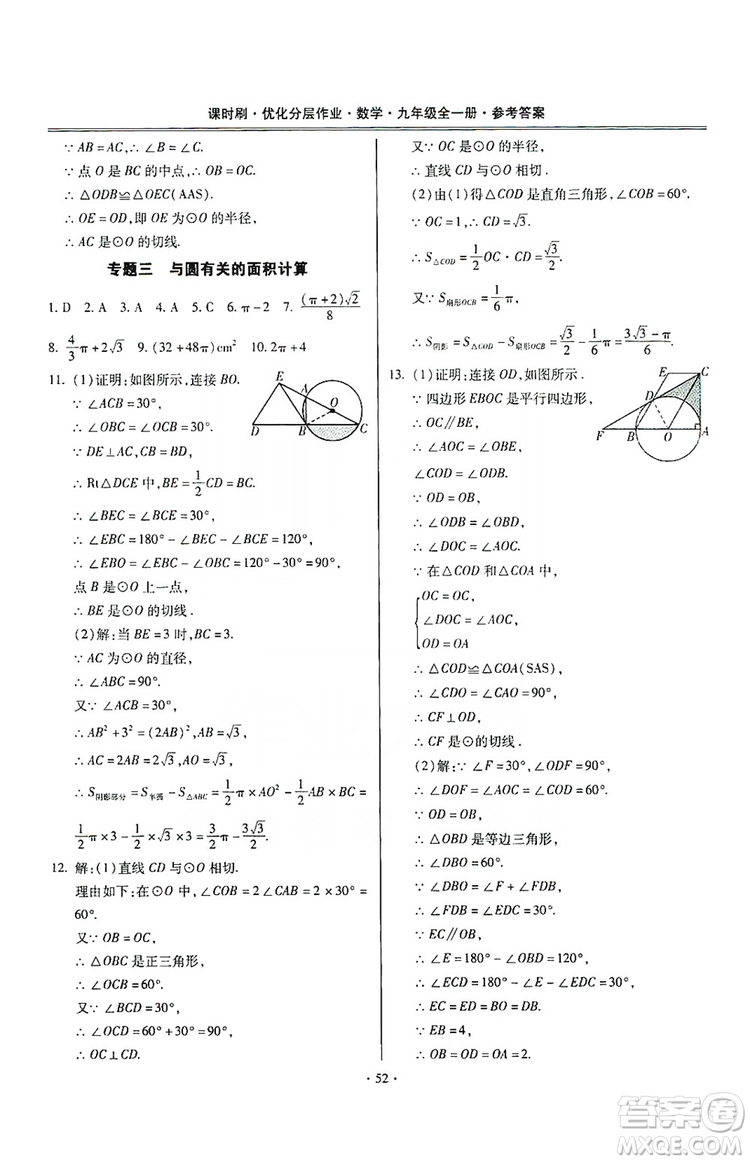 课时刷·优化分层作业·数学·九年级全一册·参考答案
∵AB=AC,∴∠B=∠C.
∵点O是BC的中点,∴OB=OC.
∴△ODB≌△OEC(AAS).
∴OE=OD,即OE为⊙O的半径,
∴AC是⊙O的切线.
专题三 与圆有关的面积计算
1.D 2.A 3.A 4.A 5.C 6.π-2 7.(π+2)√2/8
8.4/3π+2√3 9.(32+48π)cm² 10.2π+4
11.(1)证明:如图所示,连接BO.
∵∠ACB=30°,
∴∠OBC=∠OCB=30°.
∵DE⊥AC,CB=BD,
∴Rt△DCE中,BE=1/2CD=BC.
∴∠BEC=∠BCE=30°.
∴∠EBC=180°-∠BEC-∠BCE=120°,
∴∠EBO=∠EBC-∠OBC=120°-30°=90°,
点B是⊙O上一点,
∴BE是⊙O的切线.
(2)解:当BE=3时,BC=3.
∵AC为⊙O的直径,
∴∠ABC=90°.
又∵∠ACB=30°,
∴AB²+3²=(2AB)²,∴AB=√3,
∴AC=2AB=2√3,AO=√3,
∴S阴影部分=S半圆-S△ABC=1/2π×AO²-1/2AB×BC=
1/2π×3-1/2×√3×3=3/2π-3√3/2.
12.解:(1)直线CD与⊙O相切.
理由如下:在⊙O中,∠COB=2∠CAB=2×30°=
60°.
又∵OB=OC,
∴△OBC是正三角形,
∴∠OCB=60°.
又∵∠BCD=30°,
∴∠OCD=60°+30°=90°,
∴OC⊥CD.
又∵OC是⊙O的半径,
∴直线CD与⊙O相切.
(2)由(1)得△COD是直角三角形,∠COB=60°.
∵OC=1,∴CD=√3.
∴S△COD=1/2OC·CD=√3/2.
又∵S扇形OCB=1/6π,
∴S阴影=S△COD-S扇形OCB=√3/2-1/6π=3√3-π/6.
13.(1)证明:连接OD,如图所示.
∵四边形EBOC是平行四边形,
∴OC∥BE,
∴∠AOC=∠OBE,
∠COD=∠ODB.
∵OD=OB,
∴∠ODB=∠OBD.
∴∠DOC=∠AOC.
∵在△COD和△COA中,
OC=OC,
∠DOC=∠AOC,
OD=OA
∴△COD≌△COA(SAS),
∴∠CDO=∠CAO=90°,
∴CF⊥OD,
∴CF是⊙O的切线.
(2)解:∵∠F=30°,∠ODF=90°,
∴∠DOF=∠AOC=∠COD=60°.
∵OD=OB,
∴△OBD是等边三角形,
∴∠DBO=60°.
∵∠DBO=∠F+∠FDB,
∴∠FDB=∠EDC=30°.
∵EC∥OB,
∴∠E=180°-∠OBD=120°,
∴∠ECD=180°-∠E-∠EDC=30°,
∴EC=ED=BO=DB.
∵EB=4,
∴OB=OD=OA=2.
E
O
D
B
C
E
C
D
F
B
O
A
·52·
答案圈
MXQE.COM